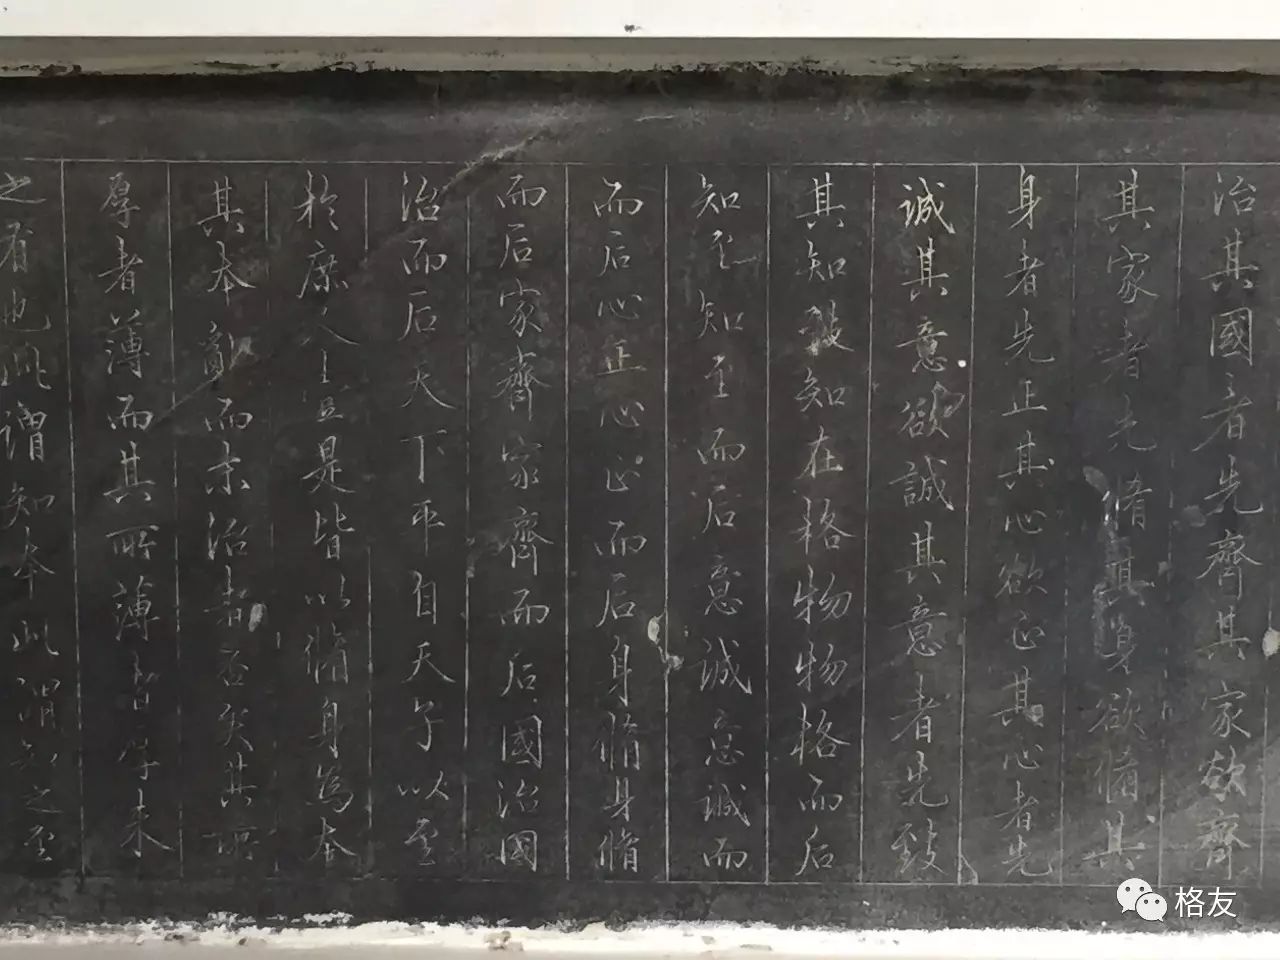 治其國者先齊其家欲齊
其家者先脩其身欲脩其
身者先正其心欲正其心者先
誠其意欲誠其意者先致
其知致知在格物物格而后
知至知至而后意誠意誠而
而后心正心正而后身脩身脩
而后家齊家齊而后國治國
治而后天下平自天子以至
於庶人壹是皆以脩身為本
其本亂而末治者否矣其所
厚者薄而其所薄者厚未
之有也此謂知本此謂知之至
格友